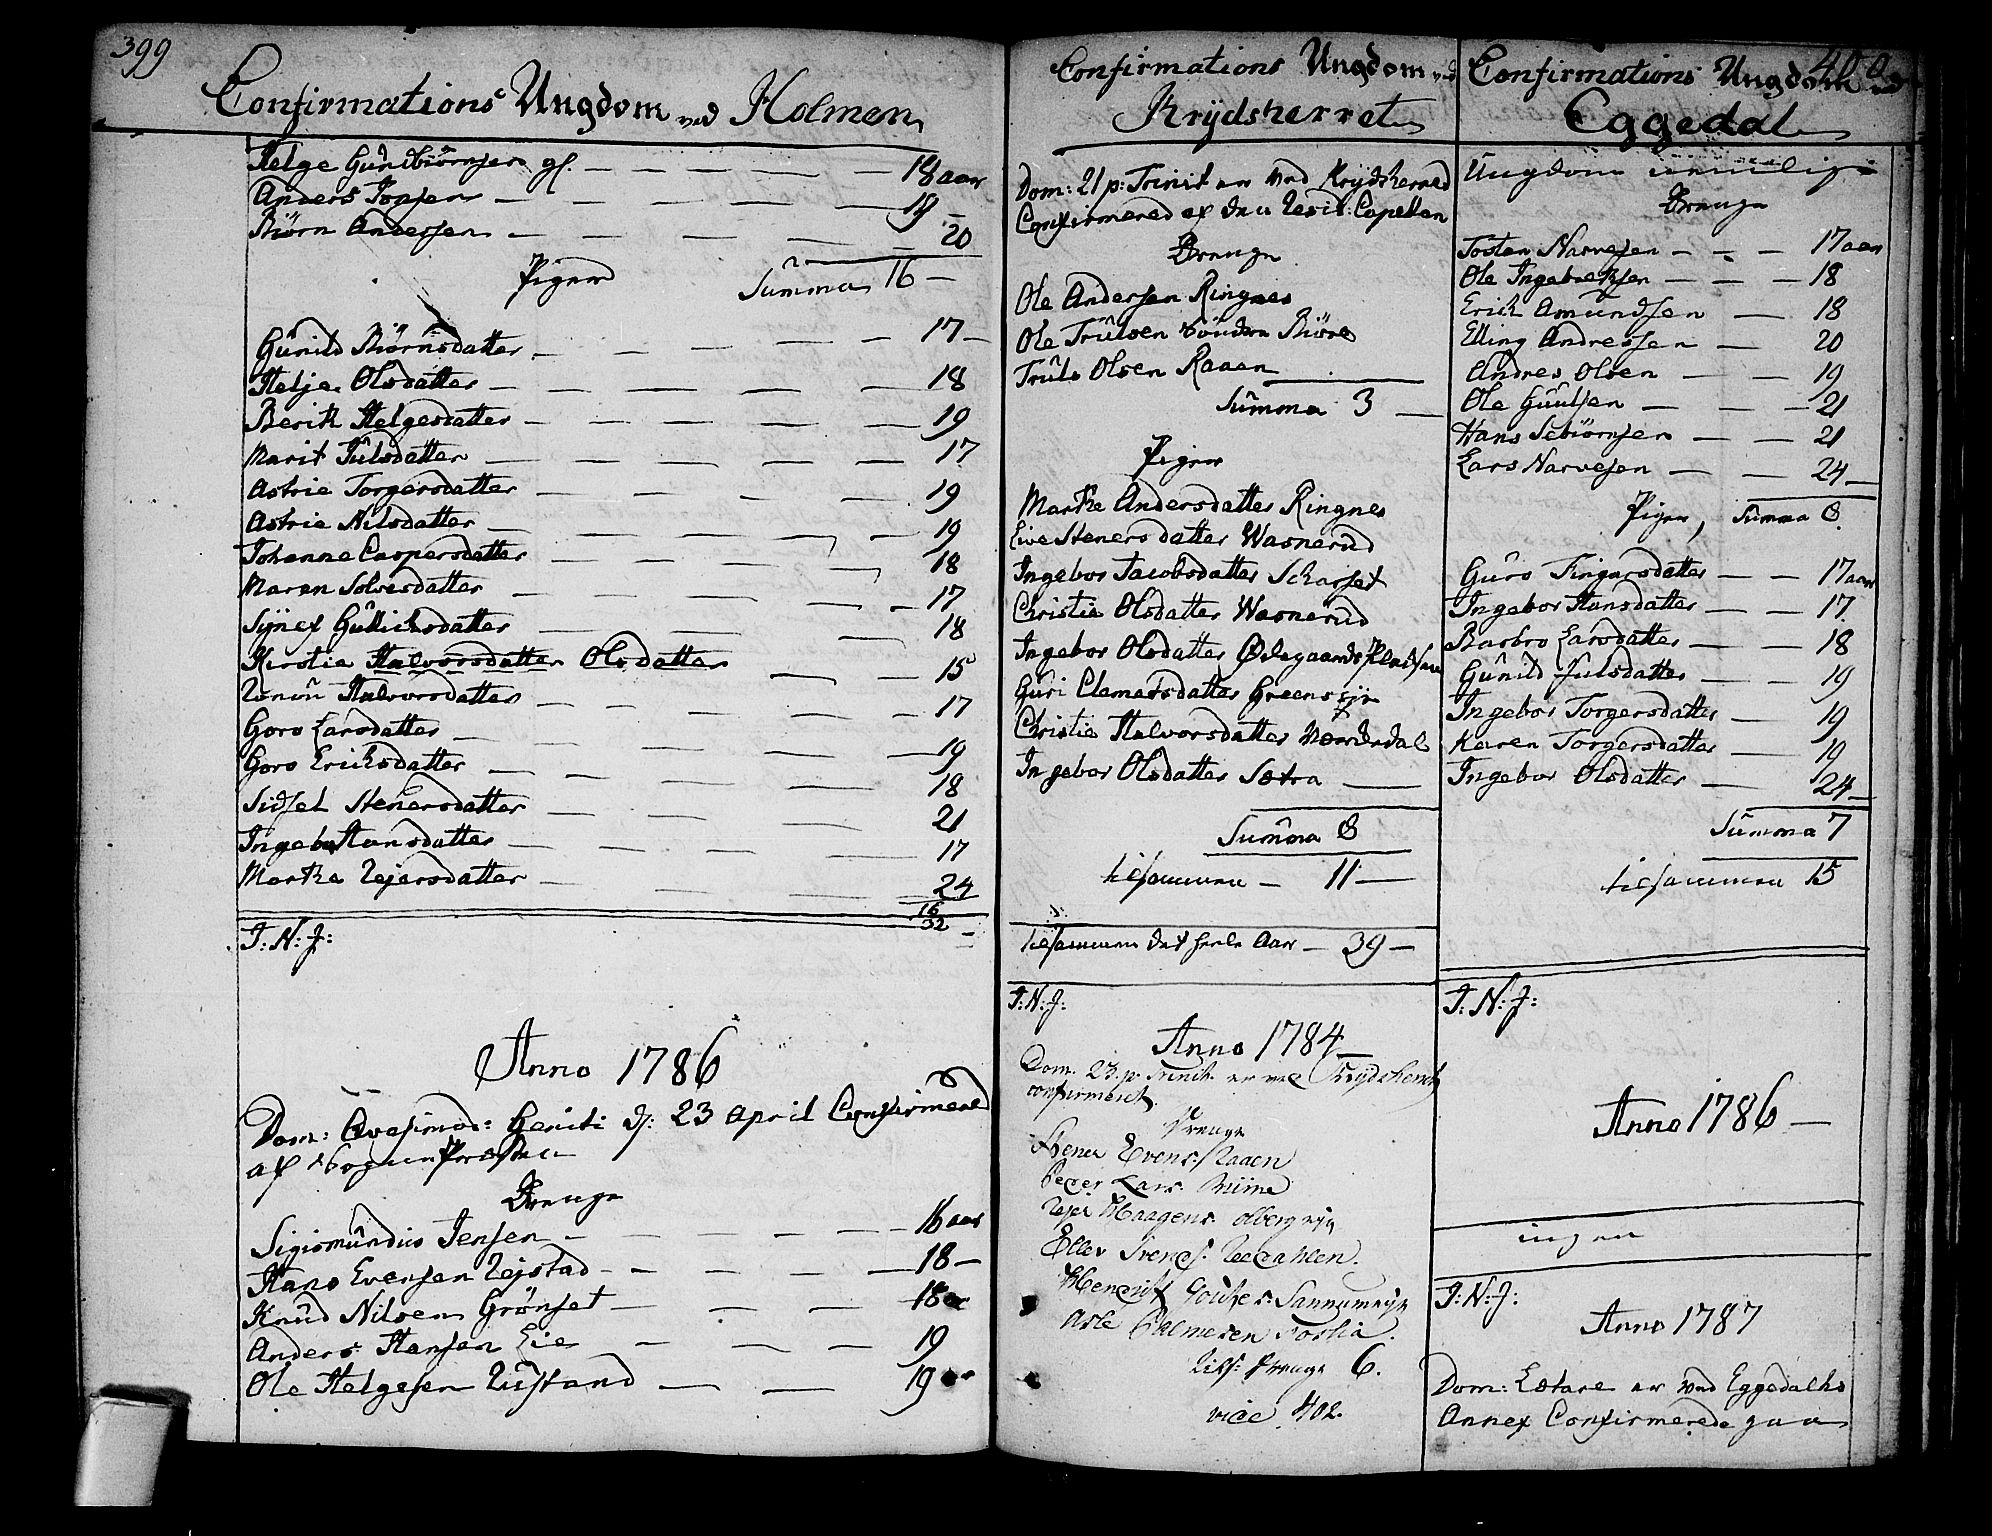 399
Confirmations Ungdom ved Holmen
Helge Gundbiørnsen gl. — 18 aar
Anders Jonsen — 19 —
Biørn Andersen — 20
Piger Summa 16 —
Gunild Biørnsdatter — 17 —
Helje Olsdatter — 18
Berith Helgesdatter — 19
Marit Julsdatter — 17
Astrie Torgersdatter — 19
Astrie Nilsdatter — 19
Johanne Caspersdatter — 18
Maren Solvesdatter — 17
Synef Gullichsdatter — 18
Kirstie Halvorsdatter Olsdatter — 15
Halvorsdatter — 17
Goro Larsdatter — 19
Goro Eriksdatter — 18
Sidsel Stenersdatter — 21
Ingebor Hansdatter — 17
Marthe Rejersdatter — 24
16
32 —
I: N: J:
Anno 1786
Dom: Qvasimod: Geniti d: 23 April Confirmered
af Sogne Præsten
Drenge
Sigismundus Jensen — 16 aar
Hans Evensen Rejstad — 18 —
Knud Nilsen Grønset — 18
Anders Hansen Lie — 19
Ole Helgesen Rustand — 19
Confirmations Ungdom ved
Krydsherret
Dom: 21 p: Trinit er ved Krydsherred
Confirmered af den Resid: Capellan
Drenge
Ole Andersen Ringnes
Ole Trulsen Søndern Biøre
Truls Olsen Raaen
Summa 3 —
Piger
Marthe Andersdatter Ringnes
Live Stenersdatter Wasnerud
Ingebor Jacobsdatter Scharset
Christie Olsdatter Wasnerud
Ingebor Olsdatter Ødegaards Pladsen
Guri Clametsdatter Greens eje
Christie Halvorsdatter Norderdal
Ingebor Olsdatter Sætra —
Summa 8
tilsammen — 11 —
tilsammen det heele Aar — 39 —
I: N: J:
Anno 1784
Dom. 23. p. Trinit. er ved Krydsherret
confirmeret.
Drenge
Stener Evens: Raaen
Peder Lars:
Rejer Haagens:
Eller Svends:
Henrich
Asle Palmesen Foslia.
Tils: Drenge 6.
vide 402.
400
Confirmations Ungdom ved
Eggedal
Ungdom nemlig:
Drenge
Tosten Narvesen — 17 aar
Ole Ingebretsen — 18
Erich Amundsen — 18
Elling Andresen — 20
Andres Olsen — 19
Ole Guulsen — 21
Hans Sebiørnsen — 21
Lars Narvesen — 24 —
Piger, Summa 8.
Guro Fingarsdatter — 17 aar
Ingebor Hansdatter — 17.
Barbro Larsdatter — 18
Gunild Julsdatter — 19
Ingebor Torgersdatter — 19
Karen Torgersdatter — 19
Ingebor Olsdatter — 24 —
Summa 7
tilsammen 15
I: N: J:
Anno 1786 —
ingen
I: N: J:
Anno 1787
Dom: Lætare er ved Eggedahls
Annex Confirmerede